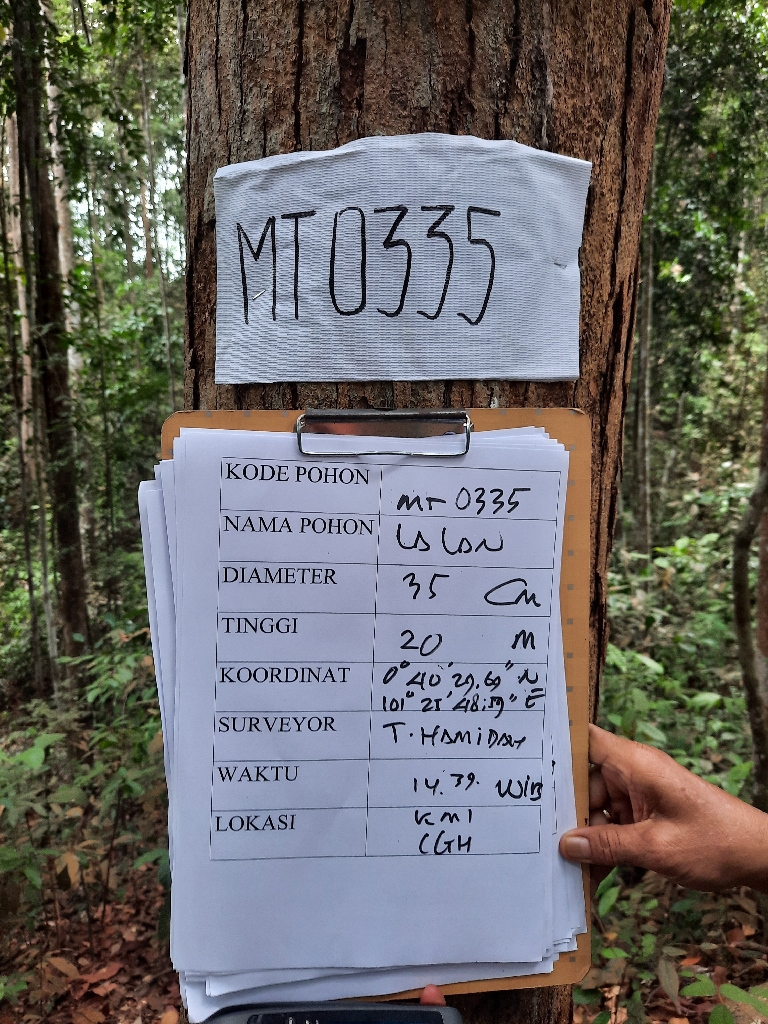 MT0335
KODE POHON MT 0335
NAMA POHON LALAN
DIAMETER 35 Cm
TINGGI 20 M
KOORDINAT 0° 40' 29,69" N
101° 21' 48,59" E
SURVEYOR T. HAMIDAH
WAKTU 14.39. WIB
LOKASI KMI
CGH